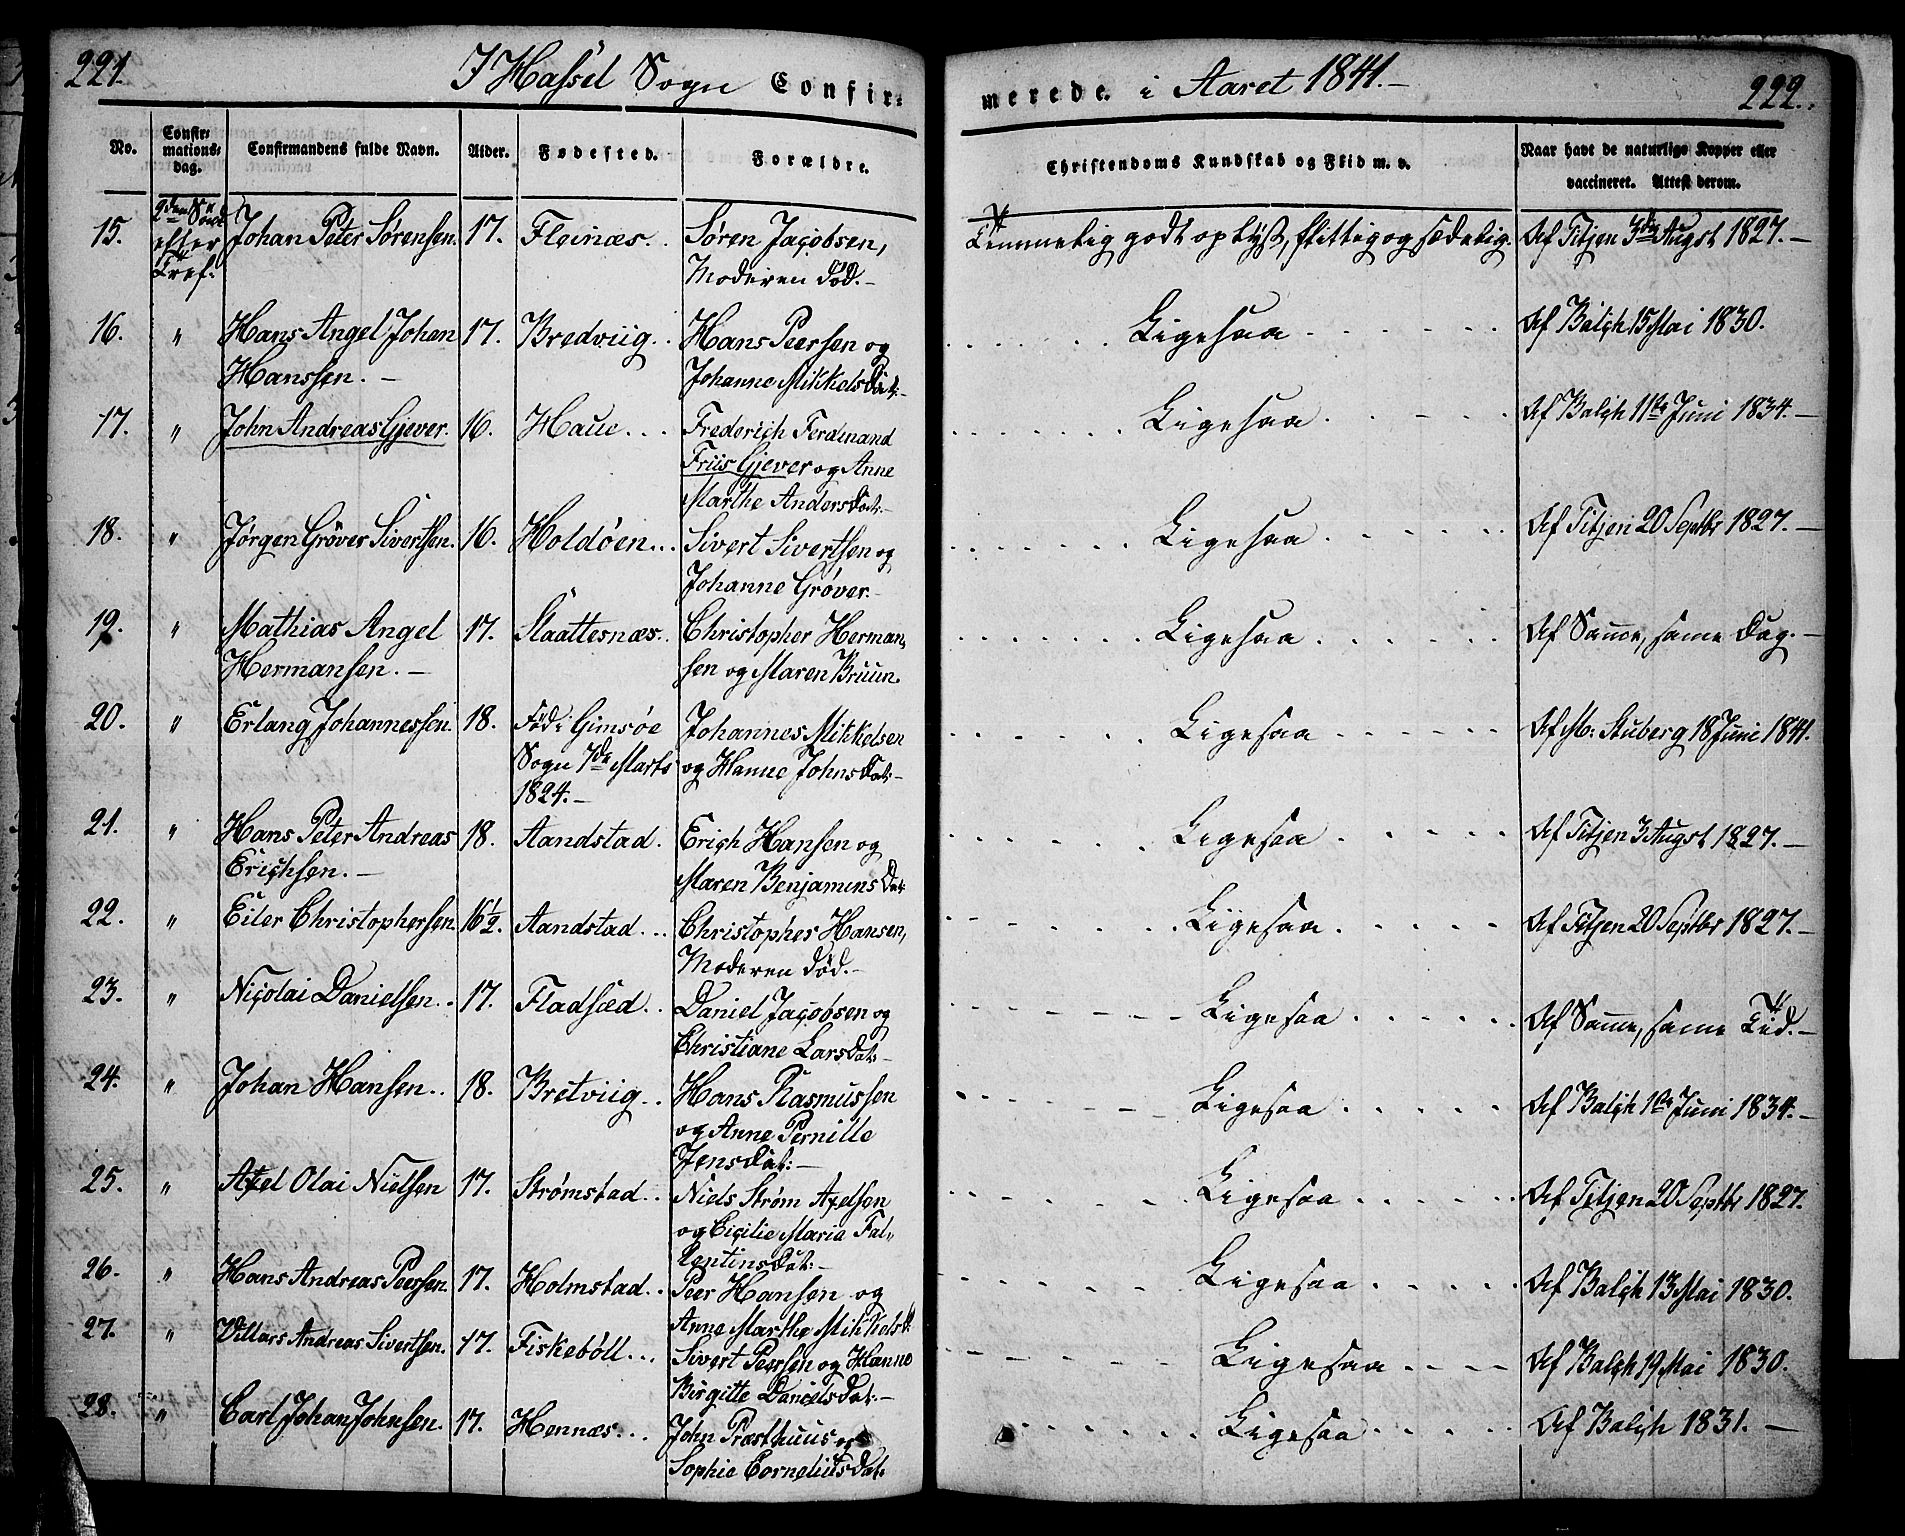 221.
I Hassel Sogn Confir-
merede. i Aaret 1841.-
222.
No. Confirmations-dag. Confirmandens fulde Navn. Alder. Fødested. Forældre. Christendoms Kundskab og Flid m. v. Naar havt de naturlige Kopper eller vaccineret. Attest derom.
15. 9den Sönd. Johan Peter Sørensen. 17. Fleinæs.. Søren Jacobsen, Temmelig godt oplyst, flittig og sædelig. Af Titjen 3die Augst 1827.-
efter Tref: Moderen død.-
16. " Hans Angel Johan 17. Bredviig.. Hans Peersen og Ligesaa Af Balch 15 Mai 1830.
Hanssen.- Johanne Mikkelsdat:-
17. " John Andreas Gjever. 16. Haue... Frederich Ferdinand Ligesaa Af Balch 11te Juni 1834.-
Friis Gjever og Anne
Marthe Andersdat:-
18. " Jørgen Gröver Sivertsen. 16. Holdöen... Sivert Sivertsen og Ligesaa Af Titjen 20 Septbr 1827.-
Johanne Grøver-
19. " Mathias Angel 17. Slaattesnæs.. Christopher Herman- Ligesaa Af Samme, same Dag.-
Hermansen.- sen og Maren Bruun.
20. " Erlang Johannessen. 18. Föd i Gimsöe Johannes Mikkelsen Ligesaa Af M: Stuberg 18 Juni 1841.
Sogn 7de Marts og Hanne Johnsdat:-
1824.-
21. " Hans Peter Andreas 18. Aandstad. Erich Hansen og Ligesaa Af Titjen 3 Augst 1827.-
Erichsen.- Maren Benjaminsdat:
22. " Eiler Christophersen. 16½. Aandstad... Christopher Hansen, Ligesaa Af Titjen 20 Septbr 1827.-
Moderen død.-
23. " Nicolai Danielsen.. 17. Fladsæd.. Daniel Jacobsen og Ligesaa Af Samme, same Tid.-
Christiane Larsdat:-
24. " Johan Hansen.. 18. Bretviig.. Hans Rasmussen Ligesaa Af Balch 1te Juni 1834.-
og Anne Pernille
Jensdat:-
25. " Axel Olai Nielsen 17. Strømstad.. Niels Strøm Axelsen Ligesaa Af Titjen 20 Septbr 1827.
og Cicilie Maria Fal-
lentinsdat:-
26. " Hans Andreas Peersen. 17. Holmstad.. Peer Hansen og Ligesaa Af Balch 13 Mai 1830.
Anne Marthe Mikkelsd:
27. " Villars Andreas Sivertsen. 17. Fiskeböll... Sivert Peersen og Hanne Ligesaa Af Balch 19 Mai 1830.
Birgitte Danielsdat:-
28. " Carl Johan Johnsen. 17. Hennæs... John Præsthuus og Ligesaa Af Balch 1831.-
Sophie Corneliusdat: